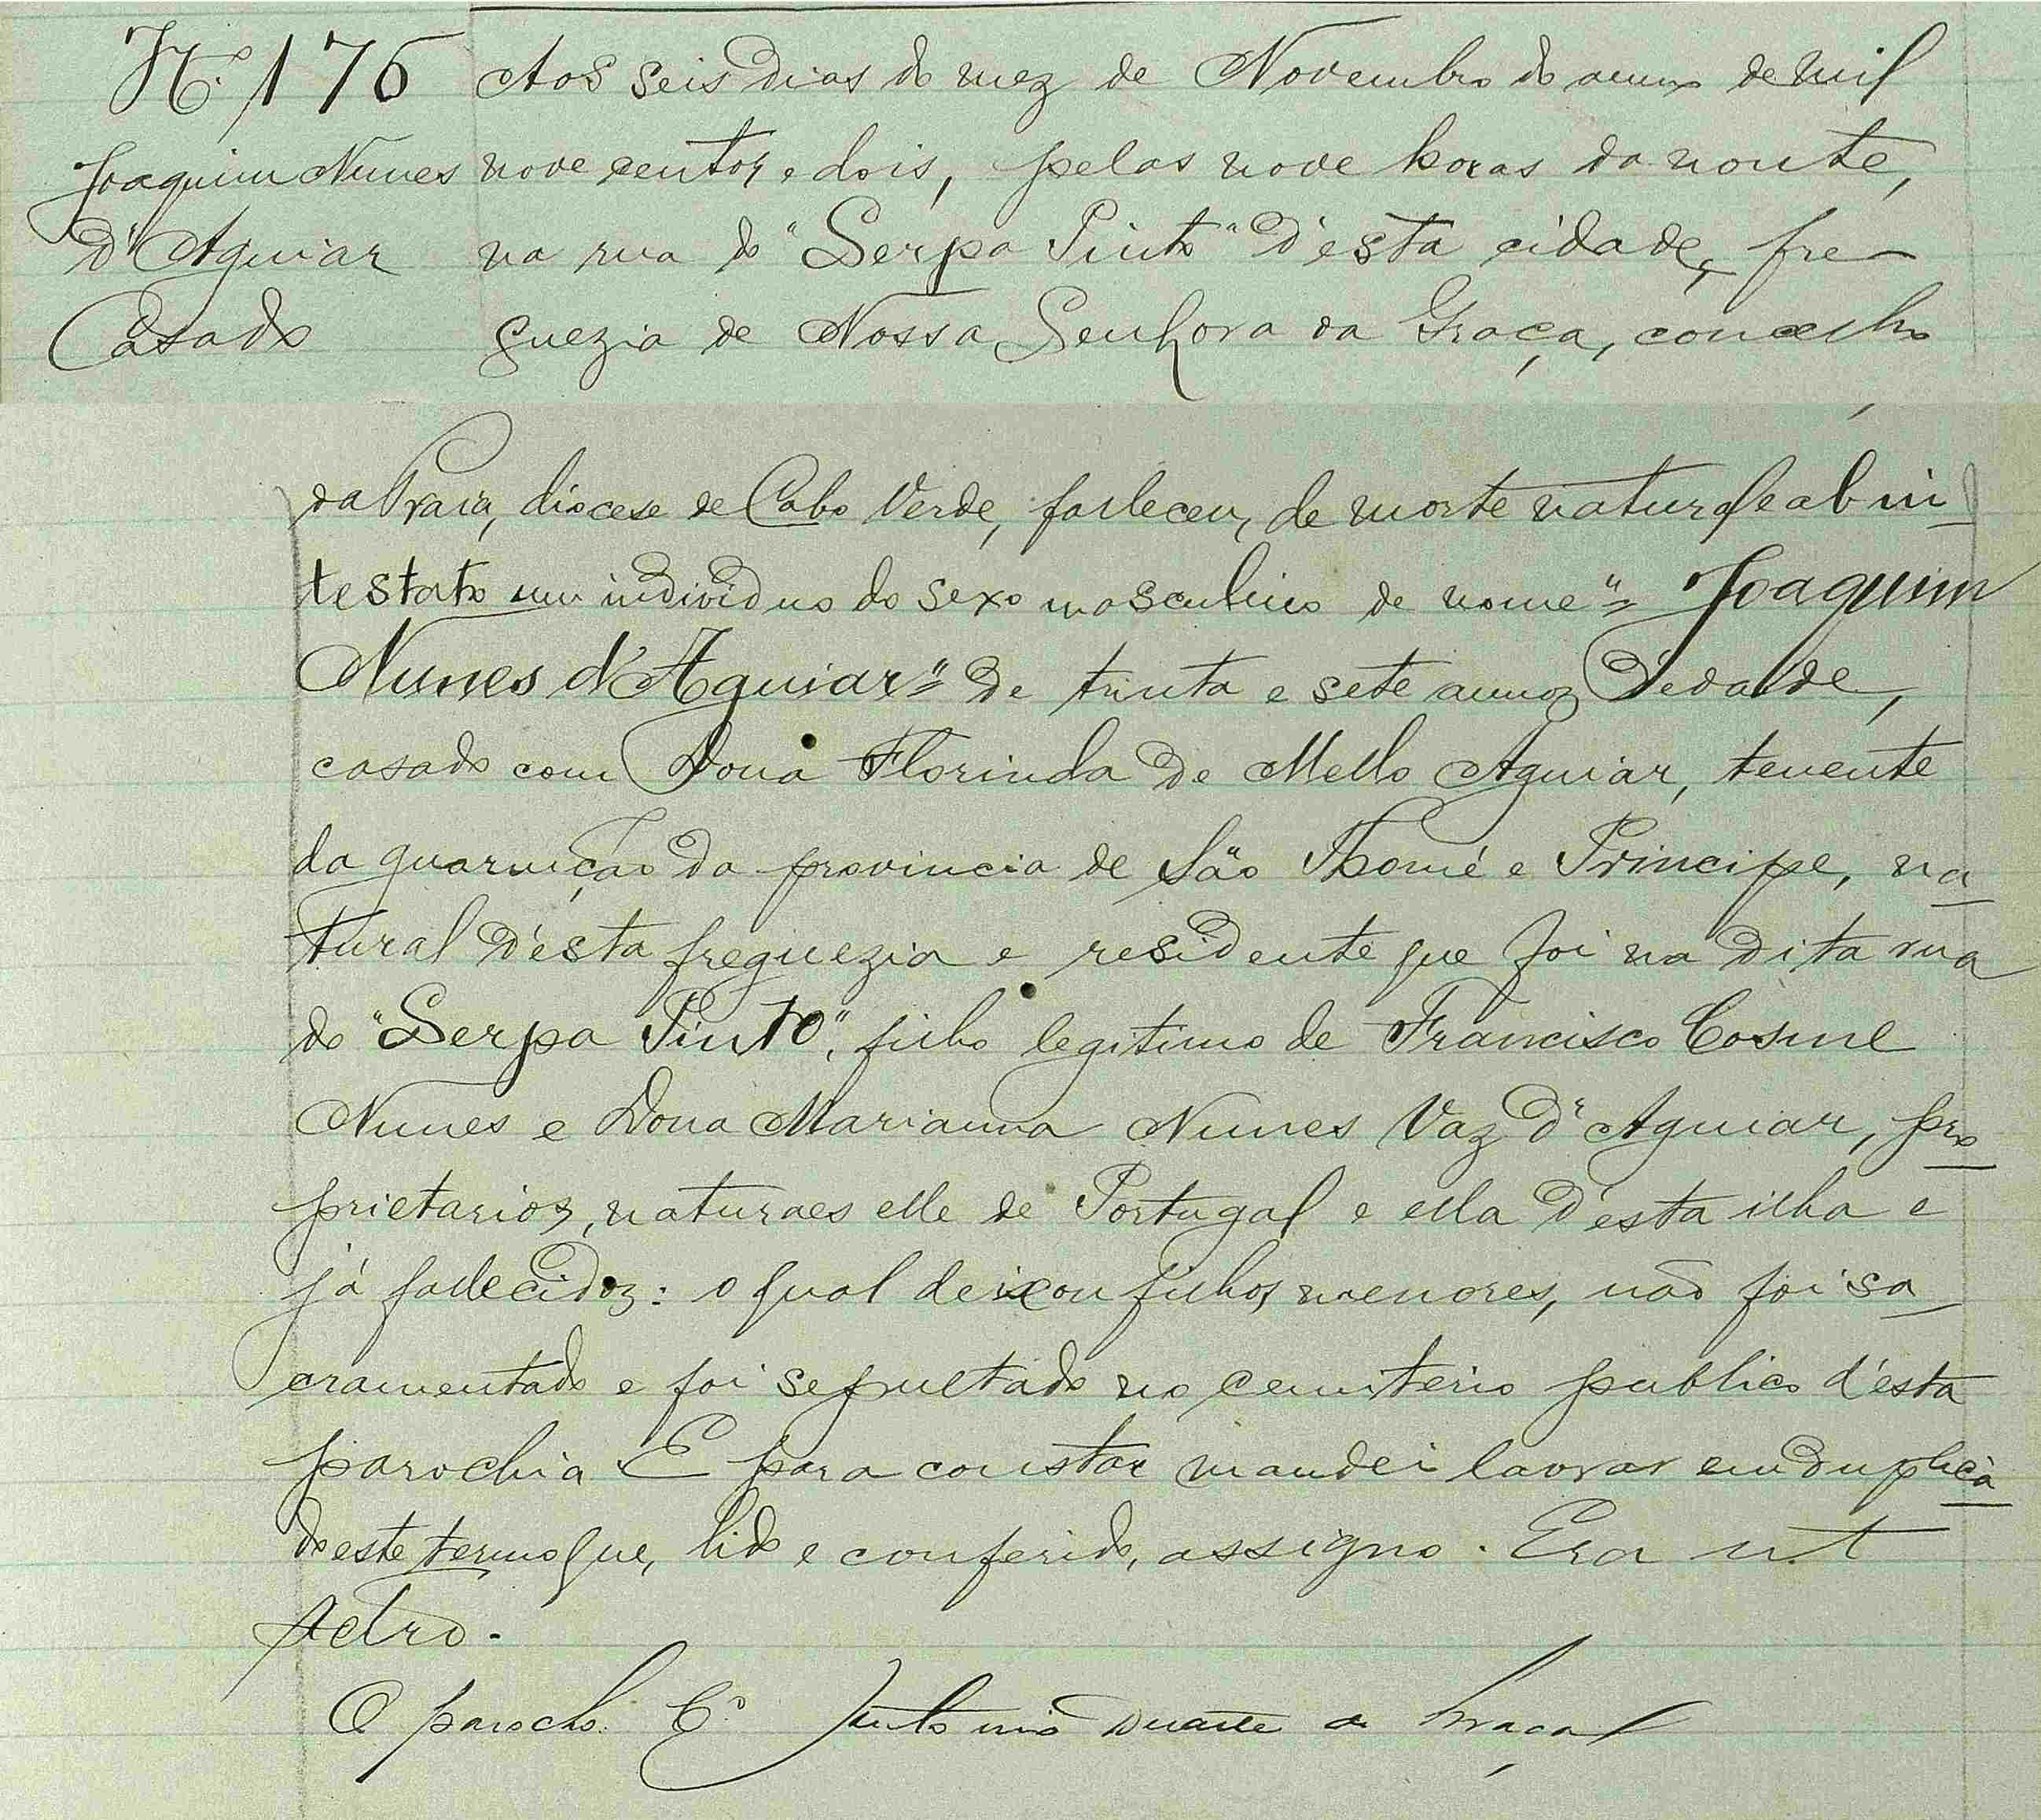 N.º 176
Joaquim Nunes
d'Aguiar
Casado
Aos seis dias do mez de Novembro do anno de mil
nove centos e dois, pelas nove horas da noute,
na rua do "Serpa Pinto" d'esta cidade, fre-
guezia de Nossa Senhora da Graça, concelho
da Praia, diocese de Cabo Verde, falleceu, de morte natural e ab in-
testato um individuo do sexo masculino de nome "= Joaquim
Nunes d'Aguiar"= de trinta e sete annos d'edade,
casado com Dona Florinda de Mello Aguiar, tenente
da guarnição da provincia de São Thomé e Principe, na-
tural d'esta freguezia e residente que foi na dita rua
do "Serpa Pinto", filho legitimo de Francisco Cosme
Nunes e Dona Marianna Nunes Vaz d'Aguiar, pro-
prietarios, naturaes elle de Portugal e ella d'esta ilha e
já fallecidos: o qual deixou filhos menores, não foi sa-
cramentado e foi sepultado no cemiterio publico d'esta
parochia. E para constar mandei lavrar em duplica-
do este termo que, lido e conferido, assigno. Era ut
retro.
O parocho C.º Antonio Duarte da Graça